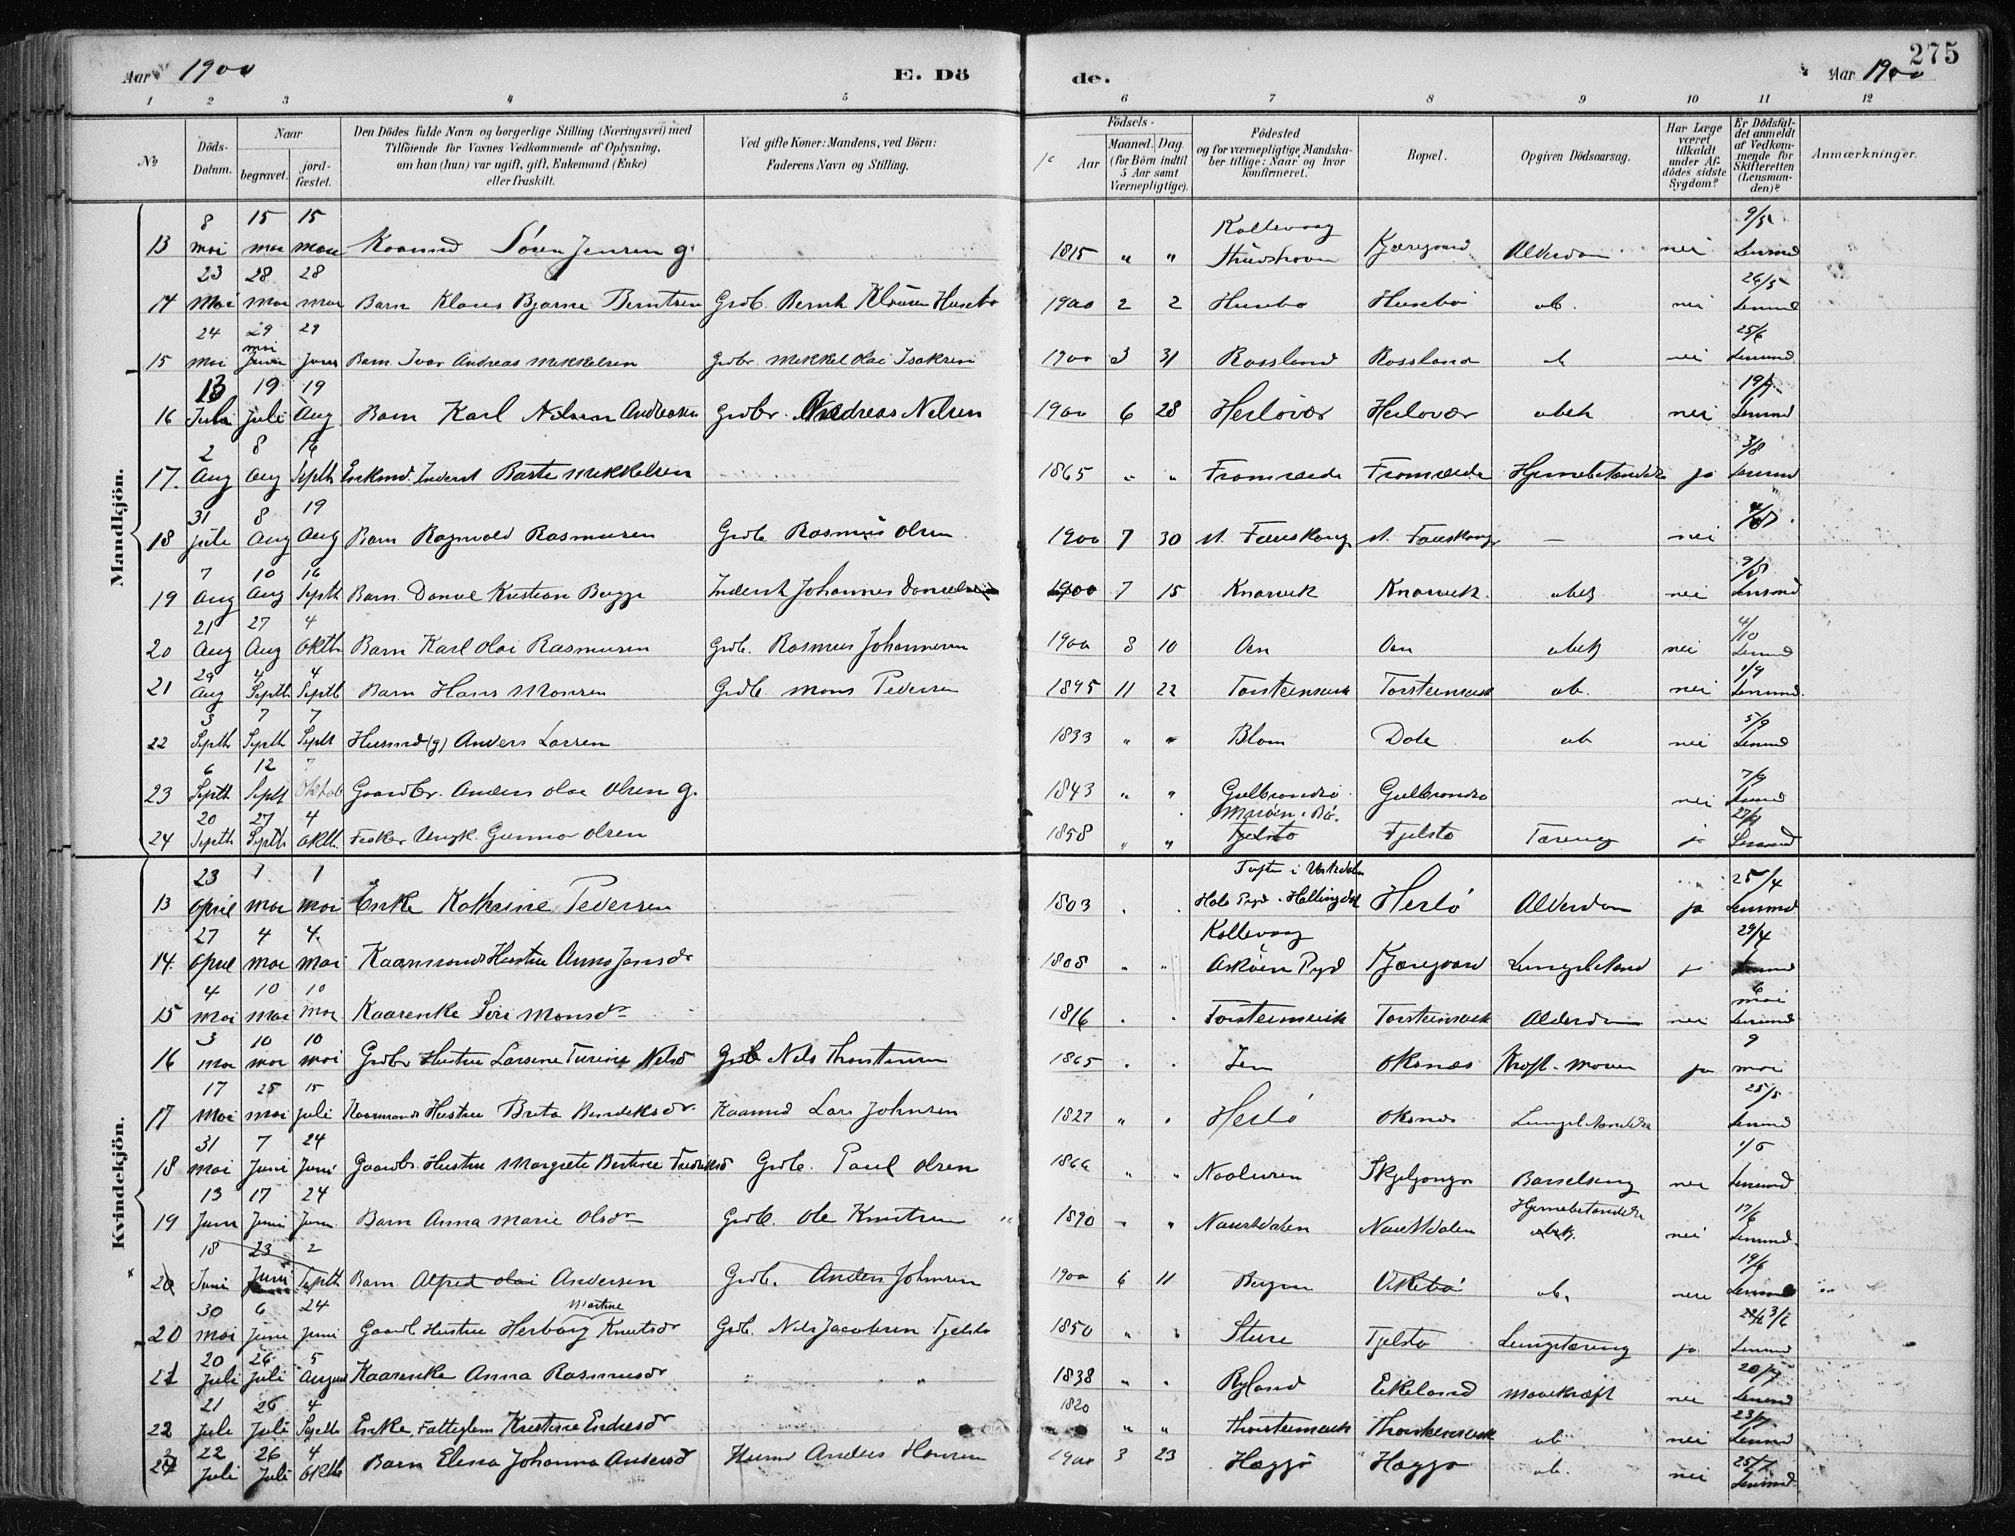 Aar 1900 E. Dö de. Aar 1900 275
1 2 3 4 5 6 7 8 9 10 11 12
No Döds-Datum. Naar begravet. jordfæstet. Den Dödes fulde Navn og borgerlige Stilling (Næringsvei) med Tilföiende for Voxnes Vedkommende af Oplysning, om han (hun) var ugift, gift, Enkemand (Enke) eller fraskilt. Ved gifte Koner: Mandens, ved Börn: Faderens Navn og Stilling. Födsels- Aar Maaned. Dag. (for Börn indtil 5 Aar samt Værnepligtige). Födested og for værnepligtige Mandskaber tillige: Naar og hvor konfirmeret. Bopæl. Opgiven Dödsaarsag. Har Læge været tilkaldt under Afdödes sidste Sygdom? Er Dödsfaldet anmeldt af Vedkommende for Skifteretten (Lensmanden)? Anmærkninger.
Mandkjön.
13 8 mai 15 mai 15 mai Kaarmd Sören Jensen g. 1815 " " Kollevaag Kjæregaard Alderdom nei 9/5 Lensmd
14 23 Mai 28 mai 28 mai Barn Klaus Bjarne Berntsen Grdb. Bernt Klausen Husebø 1900 2 2 Husebø Husebø ub. nei 26/5 Lensmd
15 24 mai 29 mai 29 Juni Barn Ivar Andreas Mikkelsen Grdbr. Mikkel Olai Isaksen 1900 3 31 Rossland Rossland ub nei 25/6 Lensmd
16 13 Juli 19 Juli 19 Aug Barn Karl Nilsen Andreasen Grdbr. Andreas Nilsen 1900 6 28 Herløvær Herlovær ubek nei 19/7 Lensmd
17. 2 Aug 8 Aug 16 Septb Enkmd. Inderst Baste Mikkelsen 1865 " " Fromreide Fromreide Hjernebetændelse ja 3/8 Lensmd
18 31 Juli 8 Aug 19 Aug Barn Ragnvald Rasmusen Grdb Rasmus Olsen 1900 7 30 N. Fauskang N. Fauskang — nei
19 7 Aug 10 Aug 16 Septb Barn Daniel Kristian Bugge Inderst Johannes Danielsen 1900 7 15 Knarvik Knarvik ubek nei 9/8 Lensmd
20 21 Aug 27 Aug 4 Oktb Barn Karl Olai Rasmusen Grdb. Rasmus Johannesen 1900 8 10 Oen Oen ubek nei 4/10 Lensmd
21 29 Aug 4 Septb 4 Septb Barn Hans Monsen Grdb Mons Pedersen 1895 11 22 Torsteinsvik Torsteinsvik ub. nei 1/9 Lensmd.
22 3 Septb 7 Septb 7 Septb Husmd (g) Anders Larsen 1833 " " Blom Dale ub nei 5/9 Lensmd
23 6 Septb 12 Septb 7 Oktob Gaardbr. Anders Olai Olsen g. 1843 " " Gulbrandsø Gulbrandsø nei 7/9 Lensmd
24 20 Septb 27 Septb 4 Oktb. Fisker Ungk. Gunnar Olsen 1858 " " Fjelstø Fjelstø Tæring ja 27/9 Lensmd
Kvindekjön.
13 23 April 1 mai 1 mai Enke Kathrine Pedersen 1803 " " Hols Pgd. Hallingdal Herlø Alderdom ja 25/4 Lensmd
14. 27 April 4 mai 4. mai Kaarmands Hustru Anna Jansdr 1808 " " Kollevaag Askøen Pgd Kjæregaard Lungebetænd ja 29/4 Lensmd
15 4 mai 10 mai 10 mai Kaarenke Siri Monsdr 1816 " " Torsteinsvik Torsteinsvik Alderdom nei 6 mai Lensmd
16 3 mai 10 mai 10 mai Grdbr Hustru Larsine Turine Nilsd Grdb Nils Thorsteinsen 1865 " " Jem Oksnes Kræft i Maven ja 9 mai
17 17 Mai 25 mai 15 Juli Kaarmands Hustru Brita Bendiksdr. Kaarmd Lars Johnsen 1827 " " Herlø Oksnes Lungebetændelse 25/5 Lensmd
18 31 mai 7 Juni 24 Juni Gaardb. Hustru Margrete Bertine Fredriksd Grdb. Paul Olsen 1866 " " Skjeljanger Barselseng nei 1/6 Lensmd
19 13 Juni 17 Juni 24 Juni Barn Anna Marie Olsdr Grdb. Ole Knutsen 1890 " " Naustdalen Naustdalen Hjernebetændelse ubek. nei 17/6 Lensmd.
20 18 Juni 23 Juni 2 Septb Barn Alfred Olai Andersen Grdb. Anders Johnsen 1900 6 11 Bergen Vikebø ub. nei 19/6 Lensmd
20 30 mai 6 Juni 24 Juni Gaardb Hustru Herborg Martine Knutsdr Grdb. Nils Jacobsen Fjelstø 1850 " " Sture Fjelstø Lungetæring ja 3/6 Lensmd
21 20 Juli 26 Juli 5 August Kaarenke Anna Rasmusdr " " 1838 " " Ryland Eikeland Mavekræft nei 20/7 Lensmd
22 21 Juli 26 Juli 4 Septb Enke, Fattiglem Kristine Endresdr 1820 " " Thorsteinsvik Thorsteinsvik ub nei 23/7 Lensmd
22 Juli 26 Juli 4 Oktb Barn Elena Johanna Andersd Husmd Anders Hansen 1900 3 23 Hægjø Hægjø ub. nei 25/7 Lensmd